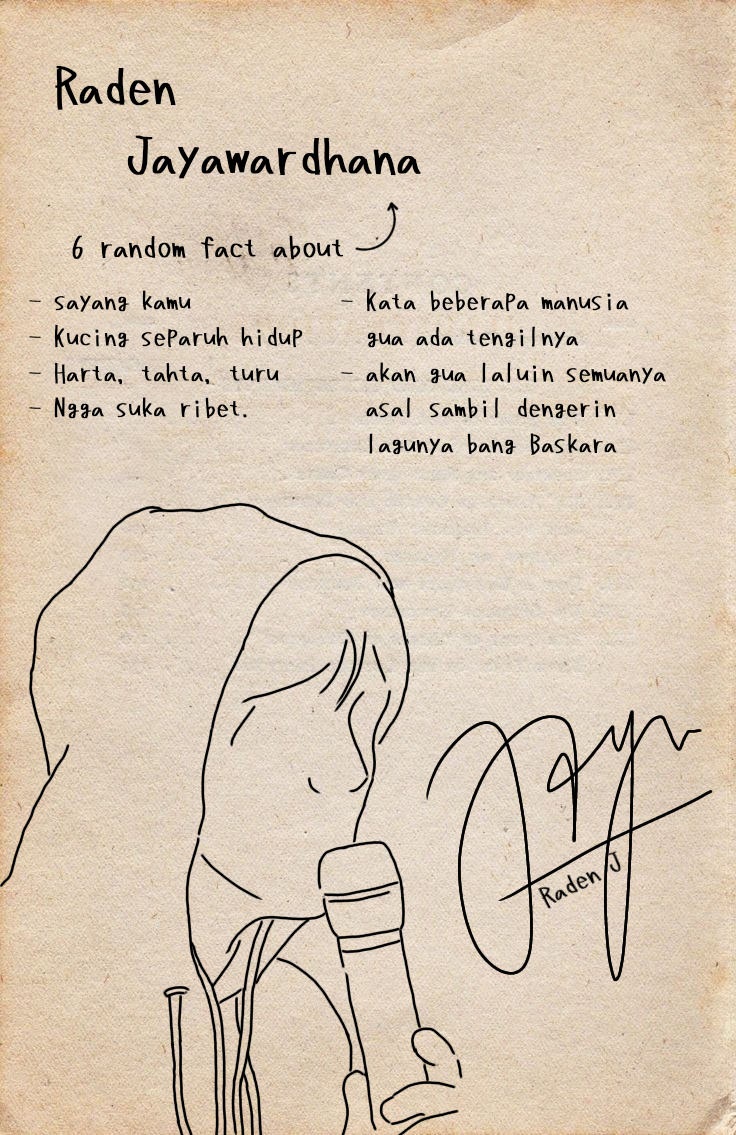 Raden
Jayawardhana
6 random fact about
- sayang kamu
- Kucing separuh hidup
- Harta, tahta, turu
- Ngga suka ribet.
- Kata beberapa manusia
gua ada tengilnya
- akan gua laluin semuanya
asal sambil dengerin
lagunya bang Baskara
Raden J